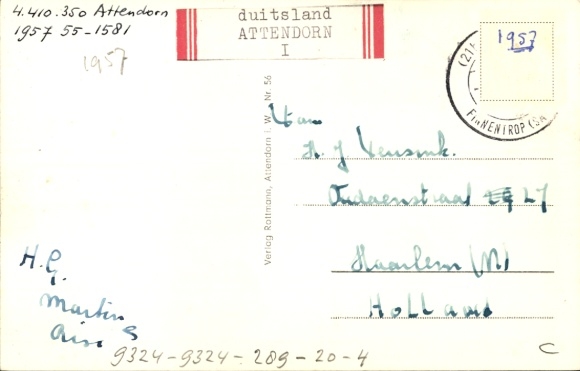 4.410.350 Attendorn
1957 55-1581
1957
duitsland
ATTENDORN
I
1957
FINNENTROP (SA
Verlag Rottmann, Attendorn i. W. Nr. 56
H. J.
27
Haarlem (N)
Holland
H. G.
Martin
9324-9324-289-20-4
C